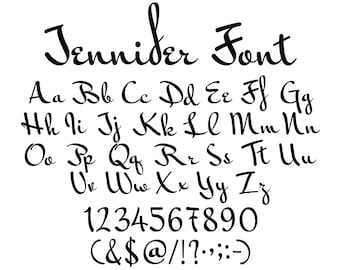 Jennifer Font
Aa Bb Cc Dd Ee Ff Gg
Hh Ii Jj Kk Ll Mm Nn
Oo Pp Qq Rr Ss Tt Uu
Vv Ww Xx Yy Zz
1234567890
(&$@/!?·,;:-)